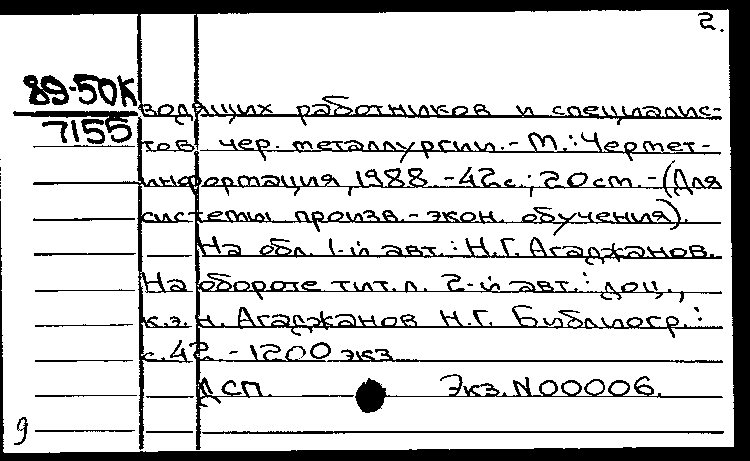 2.
89-50К
7155
водящих работников и специалис-
тов чер. металлургии.- М.: Чермет-
информация, 1988.-42с.; 20 cm.-(Для
системы произв.-экон. обучения).
На обл. 1-й авт.: Н.Г. Агаджанов.
На обороте тит.л. 2-й авт.: доц.,
к.э.н. Агаджанов Н.Г. Библиогр.:
с.42.-1200 экз
ДСП. Экз.N00006.
9